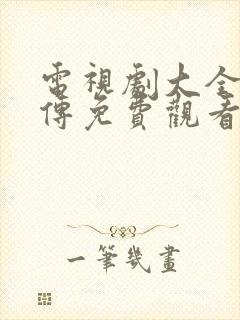 電視劇大全
傳免費觀看
一筆幾畫